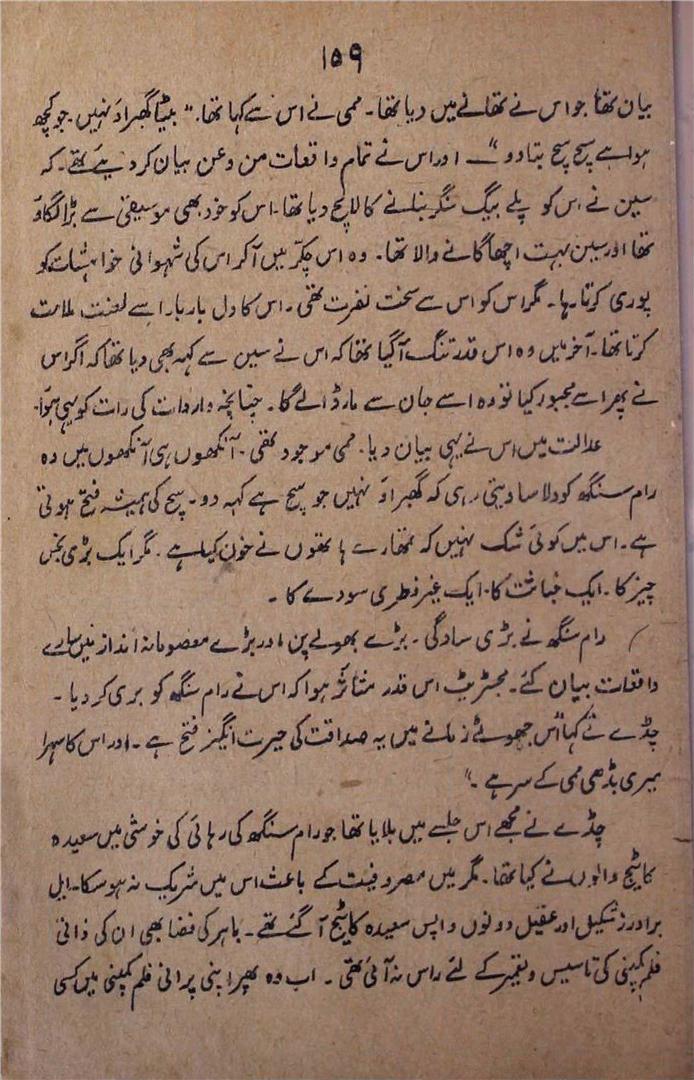 ۱۵۹
بیان تھا جو اس نے تھانے میں دیا تھا۔ ممی نے اس سے کہا تھا۔ "بیٹا گھبراؤ نہیں۔ جو کچھ
ہوا ہے سچ سچ بتا دو" ــ اور اس نے تمام واقعات من و عن بیان کر دیے تھے۔ کہ
سین نے اس کو پلے بیک سنگر بنانے کا لالچ دیا تھا۔ اس کو خود بھی موسیقی سے بڑا لگاؤ
تھا اور سین بہت اچھا گانے والا تھا۔ وہ اس چکر میں آکر اس کی شہوانی خواہشات کو
پوری کرتا رہا۔ مگر اس کو اس سے سخت نفرت تھی۔ اس کا دل بار بار اسے لعنت ملامت
کرتا تھا۔ آخر میں وہ اس قدر تنگ آگیا تھا کہ اس نے سین سے کہہ بھی دیا تھا کہ اگر اس
نے پھر اسے مجبور کیا تو وہ اسے جان سے مار ڈالے گا۔ چنانچہ واردات کی رات کو یہی ہوا۔
عدالت میں اس نے یہی بیان دیا۔ ممی موجود تھی۔ آنکھوں ہی آنکھوں میں وہ
رام سنگھ کو دلاسا دیتی رہی کہ گھبراؤ نہیں جو سچ ہے کہہ دو۔ سچ کی ہمیشہ فتح ہوتی
ہے۔ اس میں کوئی شک نہیں کہ تمھارے ہاتھوں نے خون کیا ہے۔ مگر ایک بڑی نجس
چیز کا۔ ایک خباثت کا۔ ایک غیر فطری سودے کا۔
رام سنگھ نے بڑی سادگی۔ بڑے بھولے پن اور بڑے معصومانہ انداز میں سارے
واقعات بیان کئے۔ مجسٹریٹ اس قدر متاثر ہوا کہ اس نے رام سنگھ کو بری کر دیا۔
چڈے نے کہا "اس جھوٹے زمانے میں یہ صداقت کی حیرت انگیز فتح ہے۔ اور اس کا سہرا
میری بڈھی ممی کے سر ہے۔"
چڈے نے مجھے اس جلسے میں بلایا تھا جو رام سنگھ کی رہائی کی خوشی میں سعیدہ
کاٹیج والوں نے کیا تھا۔ مگر میں مصروفیت کے باعث اس میں شریک نہ ہو سکا۔
برادرز شکیل اور عقیل دونوں واپس سعیدہ کاٹیج آ گئے تھے۔ باہر کی فضا بھی ان کی ذاتی
فلم کمپنی کی تاسیس و تعمیر کے لئے راس نہ آئی تھی۔ اب وہ پھر اپنی پرانی فلم کمپنی میں کسی